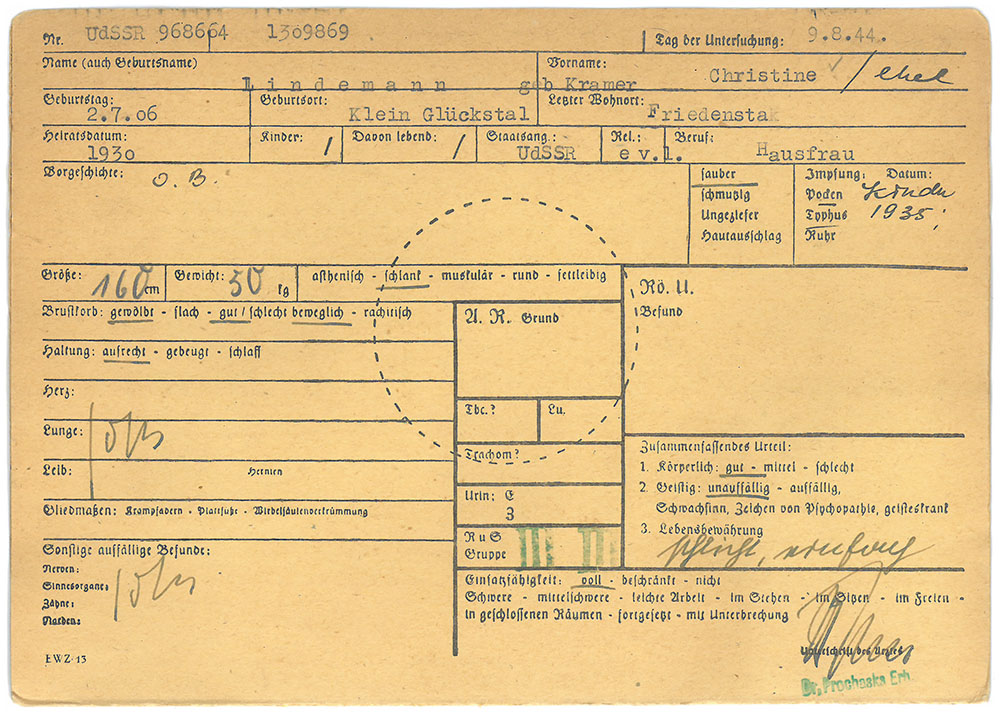 Nr. UdSSR 968664 1309869 Tag der Untersuchung: 9.8.44.
Name (auch Geburtsname) Lindemann geb Kramer Vorname: Christine / ehel
Geburtstag: 2.7.06 Geburtsort: Klein Glückstal Letzter Wohnort: Friedenstak
Heiratsdatum: 1930 Kinder: / Davon lebend: / Staatsang.: UdSSR Rel.: ev.l. Beruf: Hausfrau
Vorgeschichte: o. B.
sauber
schmutzig
Ungeziefer
Hautausschlag
Impfung: Datum:
Pocken Kinder
Typhus 1935
Ruhr
Größe: 160 cm Gewicht: 50 kg asthenisch - schlank - muskulär - rund - fettleibig
Brustkorb: gewölbt - flach - gut / schlecht beweglich - rachitisch
Haltung: aufrecht - gebeugt - schlaff
Herz:
Lunge:
Leib: Hernien
Gliedmaßen: Krampfadern - Plattfuße - Wirbelsäulenverkrümmung
Sonstige auffällige Befunde:
Nerven:
Sinnesorgane:
Zähne:
Narben:
EWZ-13
A. R. Grund
Tbc.? Lu.
Trachom?
Urin: E
3
R u S
Gruppe III III
Rö. U.
Befund
Zusammenfassendes Urteil:
1. Körperlich: gut - mittel - schlecht
2. Geistig: unauffällig - auffällig,
Schwachsinn, Zeichen von Psychopathie, geisteskrank
3. Lebensbewährung
schlicht, einfach
Einsatzfähigkeit: voll - beschränkt - nicht
Schwere - mittelschwere - leichte Arbeit - im Stehen - im Sitzen - im Freien -
in geschlossenen Räumen - fortgesetzt - mit Unterbrechung
Unterschrift des Arztes
Dr. Prochaska Erh.